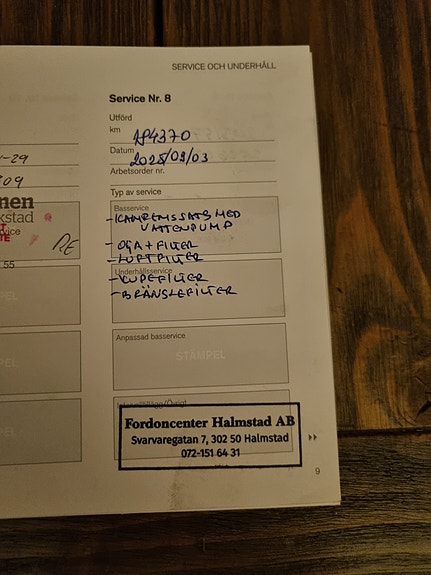 SERVICE OCH UNDERHÅLL
Service Nr. 8
Utförd
km
Datum
Arbetsorder nr.
Typ av service
-29
309
nen
kstad
vice
55
Basservice
-KAMREMSSATS MED
VATTENPUMP
-OLJA+FILTER
-LUFTFILTER
Underhållsservice
-KUPEFILTER
-BRÄNSLEFILTER
STÄMPEL
Anpassad basservice
STÄMPEL
Fordoncenter Halmstad AB
Svarvaregatan 7, 302 50 Halmstad
072-151 64 31
9